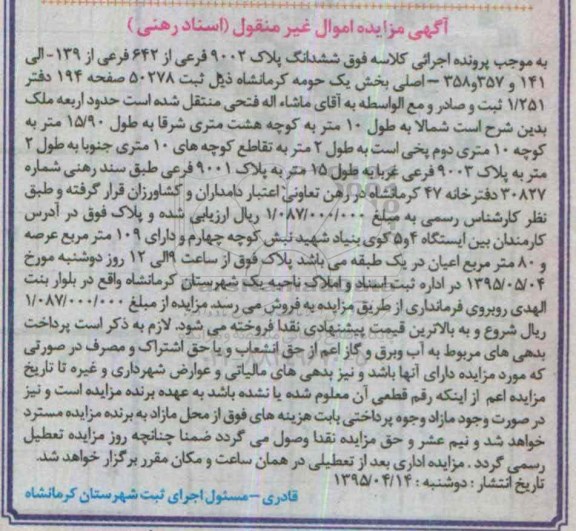 آگهی مزایده اموال غیر منقول (اسناد رهنی)
به موجب پرونده اجرائی کلاسه فوق ششدانگ پلاک ۹۰۰۲ فرعی از ۶۴۲ فرعی از ۱۳۹- الی
۱۴۱ و ۳۵۷و۳۵۸ – اصلی بخش یک حومه کرمانشاه ذیل ثبت ۵۰۲۷۸ صفحه ۱۹۴ دفتر
۱/۲۵۱ ثبت و صادر و مع الواسطه به آقای ماشاء اله فتحی منتقل شده است حدود اربعه ملک
بدین شرح است شمالا به طول ۱۰ متر به کوچه هشت متری شرقا به طول ۱۵/۹۰ متر به
کوچه ۱۰ متری دوم پخی است به طول ۲ متر به تقاطع کوچه های ۱۰ متری جنوبا به طول ۲
متر به پلاک ۹۰۰۳ فرعی غربا به طول ۱۵ متر به پلاک ۹۰۰۱ فرعی طبق سند رهنی شماره
۳۰۸۲۷ دفترخانه ۴۷ کرمانشاه در رهن تعاونی اعتبار دامداران و کشاورزان قرار گرفته و طبق
نظر کارشناس رسمی به مبلغ ۱/۰۸۷/۰۰۰/۰۰۰ ریال ارزیابی شده و پلاک فوق در آدرس
کارمندان بین ایستگاه ۴و۵ کوی بنیاد شهید نبش کوچه چهارم و دارای ۱۰۹ متر مربع عرصه
و ۸۰ متر مربع اعیان در یک طبقه می باشد پلاک فوق از ساعت ۹الی ۱۲ روز دوشنبه مورخ
۱۳۹۵/۰۵/۰۴ در اداره ثبت اسناد و املاک ناحیه یک شهرستان کرمانشاه واقع در بلوار بنت
الهدی روبروی فرمانداری از طریق مزایده به فروش می رسد. مزایده از مبلغ ۱/۰۸۷/۰۰۰/۰۰۰
ریال شروع و به بالاترین قیمت پیشنهادی نقدا فروخته می شود. لازم به ذکر است پرداخت
بدهی های مربوط به آب وبرق و گاز اعم از حق انشعاب و یا حق اشتراک و مصرف در صورتی
که مورد مزایده دارای آنها باشد و نیز بدهی های مالیاتی و عوارض شهرداری و غیره تا تاریخ
مزایده اعم از اینکه رقم قطعی آن معلوم شده یا نشده باشد به عهده برنده مزایده است و نیز
در صورت وجود مازاد وجوه پرداختی بابت هزینه های فوق از محل مازاد به برنده مزایده مسترد
خواهد شد و نیم عشر و حق مزایده نقدا وصول می گردد ضمنا چنانچه روز مزایده تعطیل
رسمی گردد . مزایده اداری بعد از تعطیلی در همان ساعت و مکان مقرر برگزار خواهد شد.
تاریخ انتشار : دوشنبه : ۱۳۹۵/۰۴/۱۴
قادری – مسئول اجرای ثبت شهرستان کرمانشاه